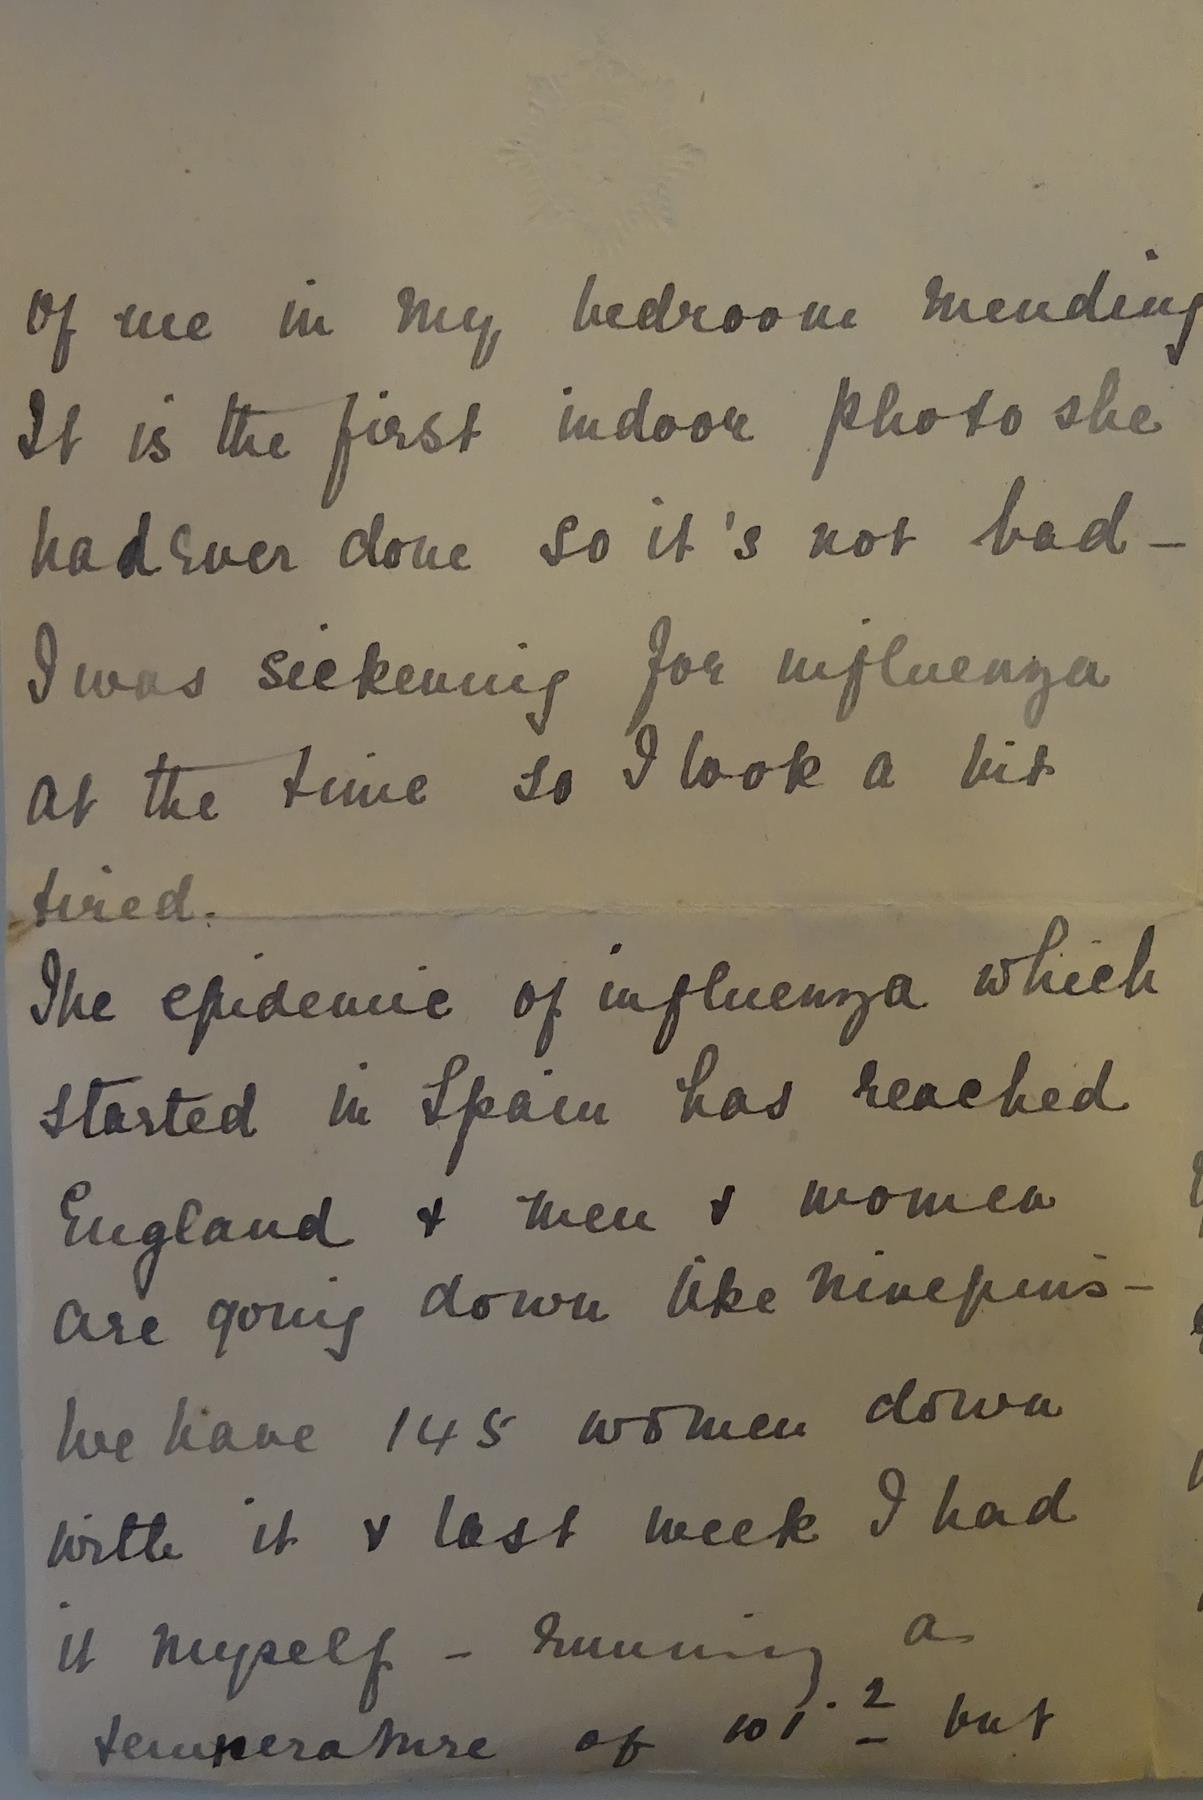 of me in my bedroom mending
It is the first indoor photo she
had ever done so it's not bad –
I was sickening for influenza
at the time so I look a bit
tired.
The epidemic of influenza which
started in Spain has reached
England & men & women
are going down like ninepins –
We have 145 women down
with it & last week I had
it myself – running a
temperature of 101.2 but